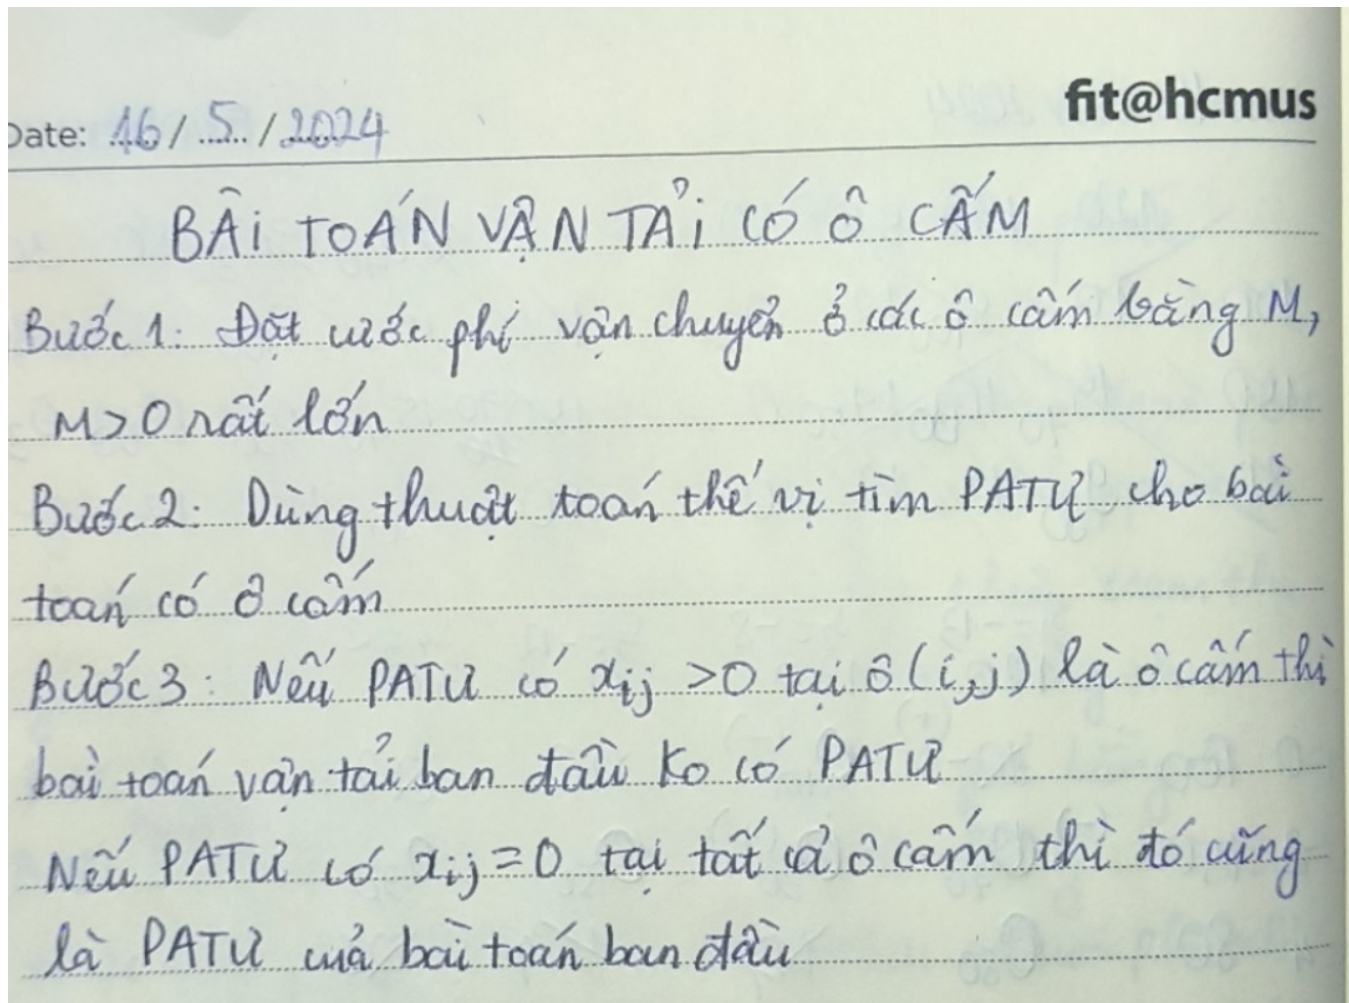 fit@hcmus
Date: 16/5/2024
BÀI TOÁN VẬN TẢI CÓ Ô CẤM
Bước 1: Đặt cước phí vận chuyển ở các ô cấm bằng M,
M>0 rất lớn
Bước 2: Dùng thuật toán thế vị tìm PATƯ cho bài
toán có ô cấm
Bước 3: Nếu PATƯ có xij >0 tại ô (i,j) là ô cấm thì
bài toán vận tải ban đầu ko có PATƯ
Nếu PATƯ có xij=0 tại tất cả ô cấm thì đó cũng
là PATƯ của bài toán ban đầu